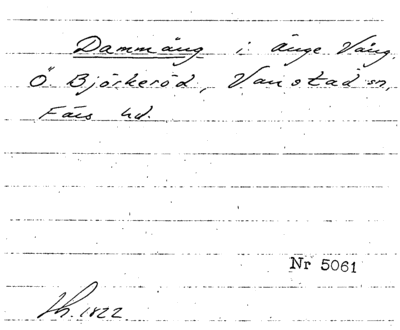 Dammäng i Änge Vång,
Ö Björkeröd, Vanstad sn,
Färs hd.
Nr 5061
1822